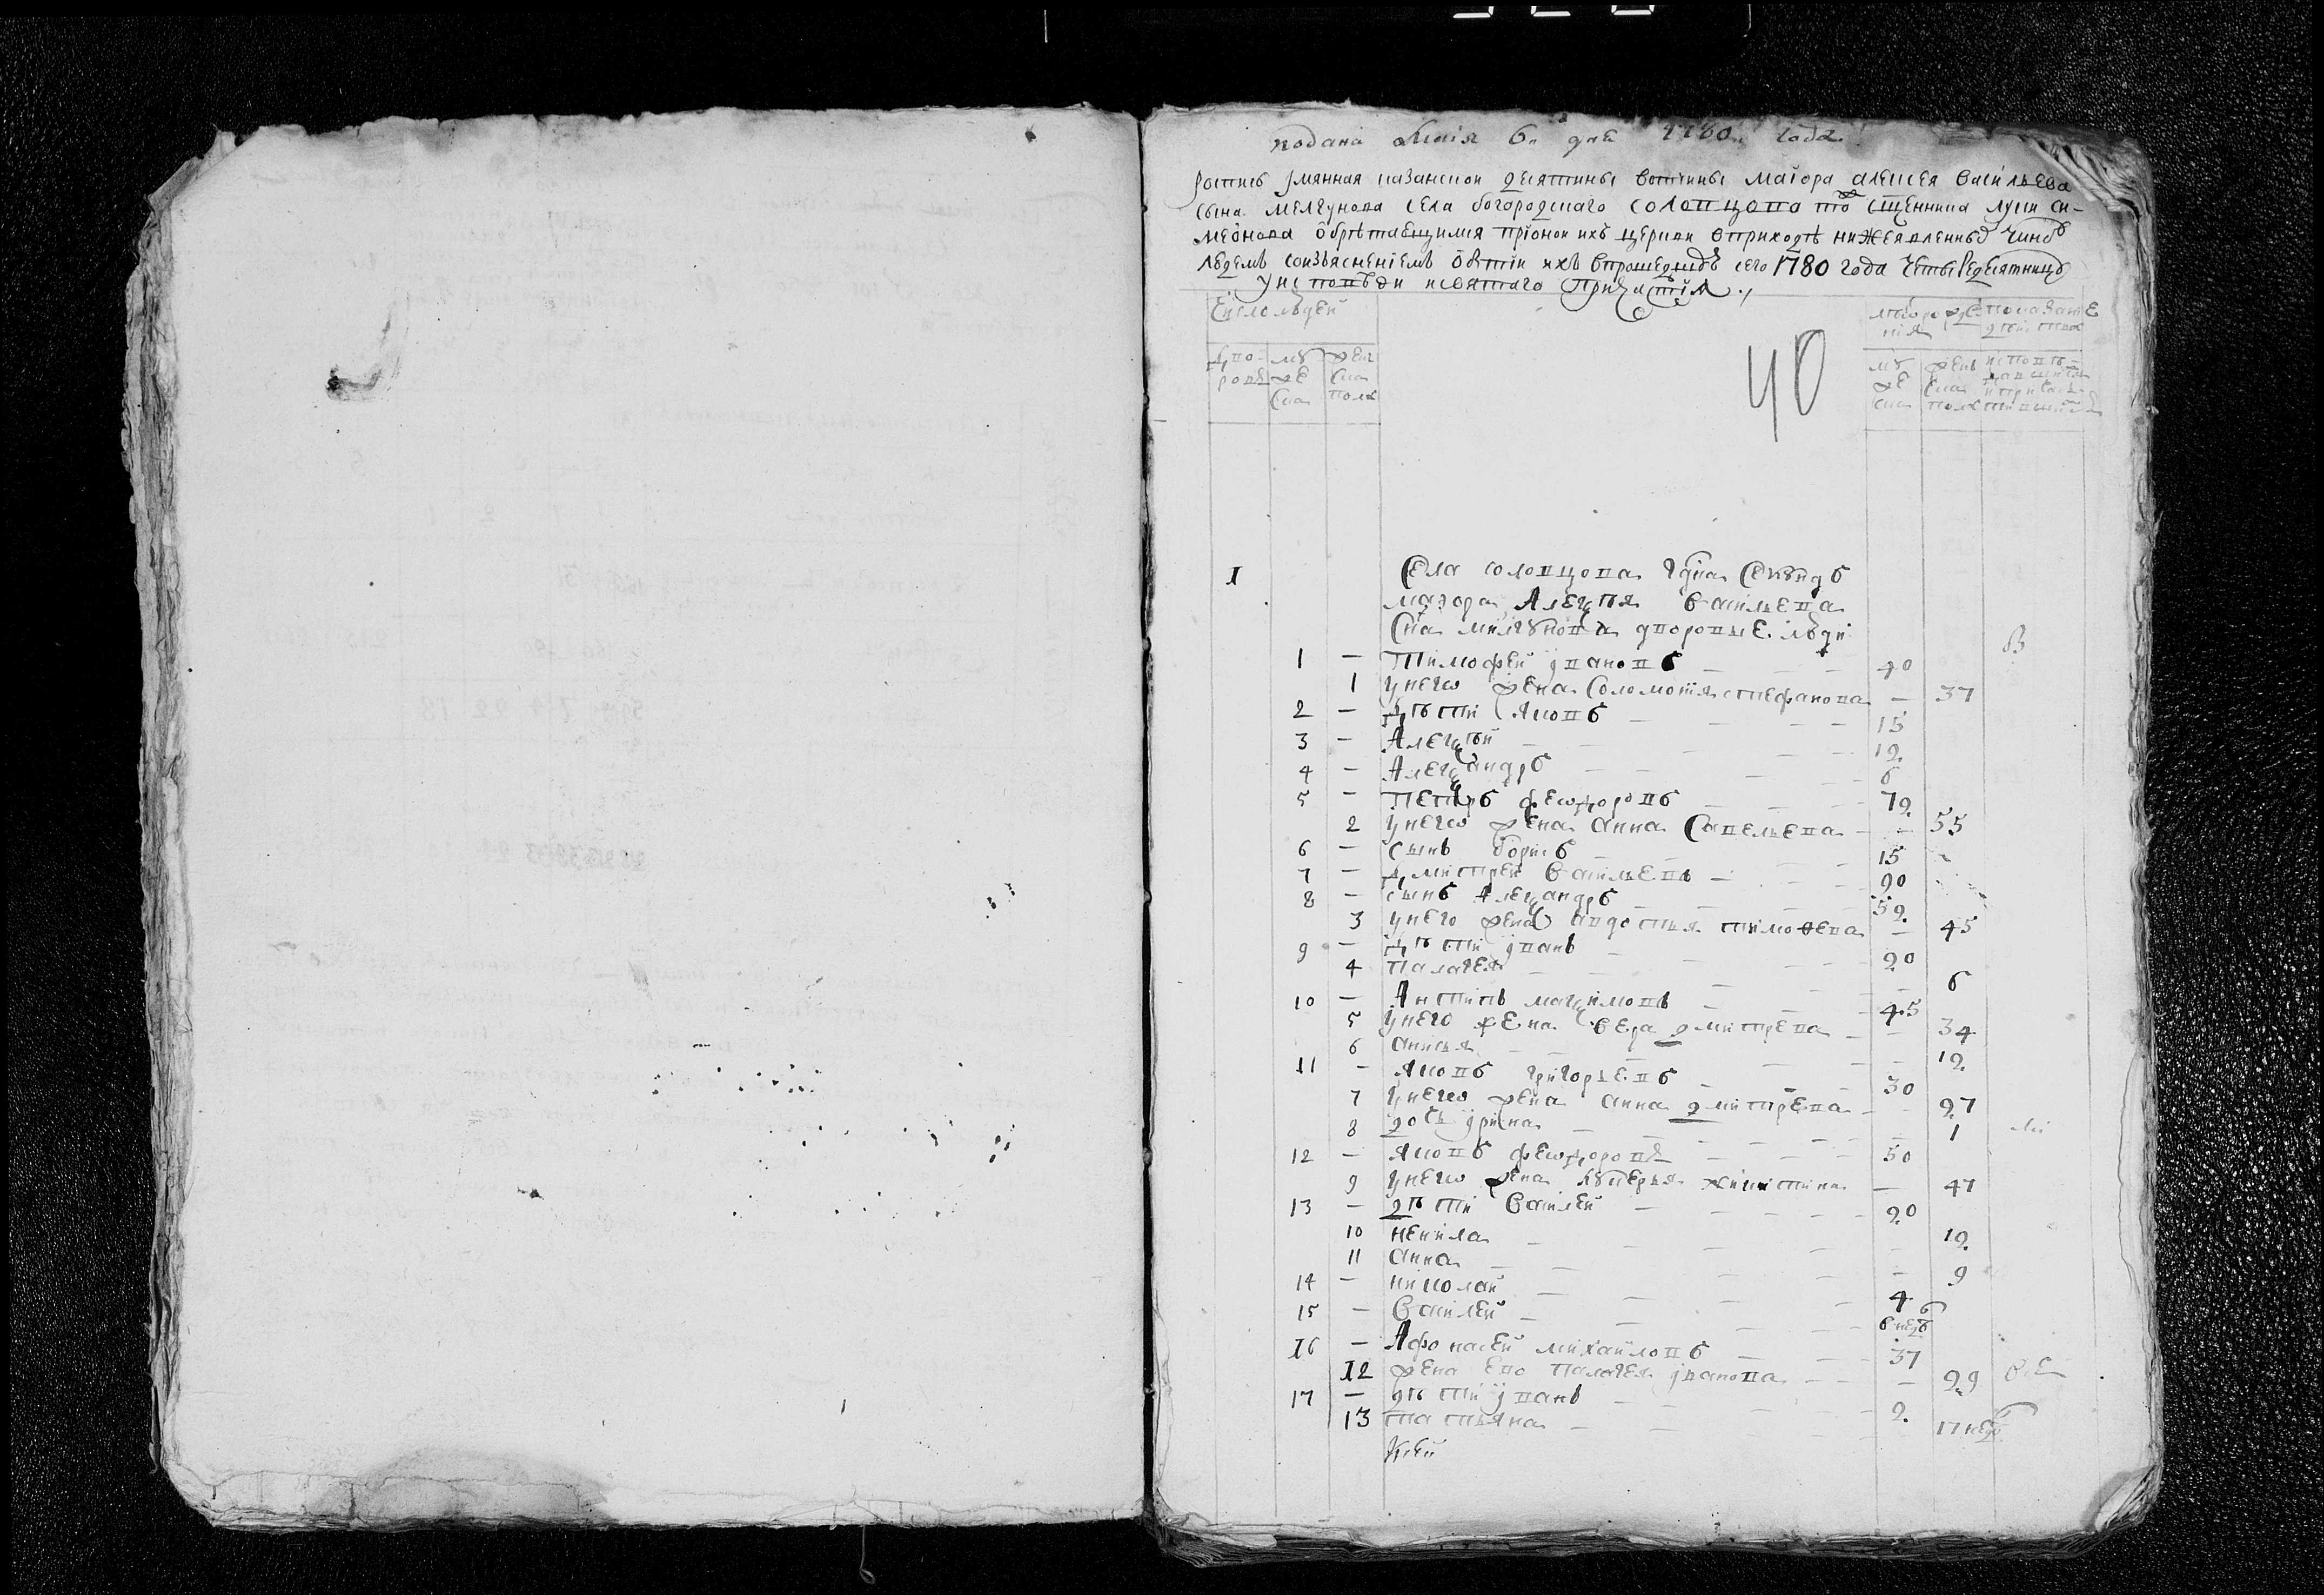 подана Маія 6„ дня 1780„ года
роспись имянная казанской десятины вотчины маіора алексея васильева
сына мелгунова села богородскаго солопцово тожъ сщенника луки си-
меонова обрѣтающимся прионой ихъ церкви вприходѣ нижеявленныхъ чиновъ
людемъ соизъясненіемъ бытіи ихъ впрошедшую сего 1780 года четыредесятницу
уисповѣди исвятаго причастія
Число людей
лѣто рожденія
показаніе дѣйства
дворовъ
муже ска
женска полу
муже ска
женска полу
40
1 Села солопцова гдна Секундъ
маэора Алеѯѣя Васильева
Сна милгунова дворовые люди
1 — Тимофей ивановъ 40
1 унего жена Соломонія стефанова — 37
2 — Дѣти Яковъ 15
3 — Алеѯѣй 12
4 — Алеѯандръ 6
5 — Петръ феодоровъ 72
2 унего жена анна Савельева — 55
6 — сынъ борисъ 15
7 — Дмитрей Васильевъ 90
8 — сынъ Алеѯандръ 52
3 унего жена авдотья тимоѳева — 45
9 — Дѣти иванъ 20
4 палагея — 6
10 — Антипъ маѯимовъ 45
5 унего жена вера дмитрева — 34
6 анисья — 12
11 — Яковъ григорьевъ 30
7 унего жена анна дмитрева — 27
8 дочь ирина — 1
12 — Яковъ феодоровъ 50
9 унего жена лукерья никитина — 47
13 — дѣти Василей 20
10 ненила — 12
11 анна — 9
14 — николай 4
15 — Василей 6 недъ
16 — Афонасей михайловъ 37
12 жена ево палагея иванова — 29
17 — дѣти иванъ 2
13 татьяна 17 недъ